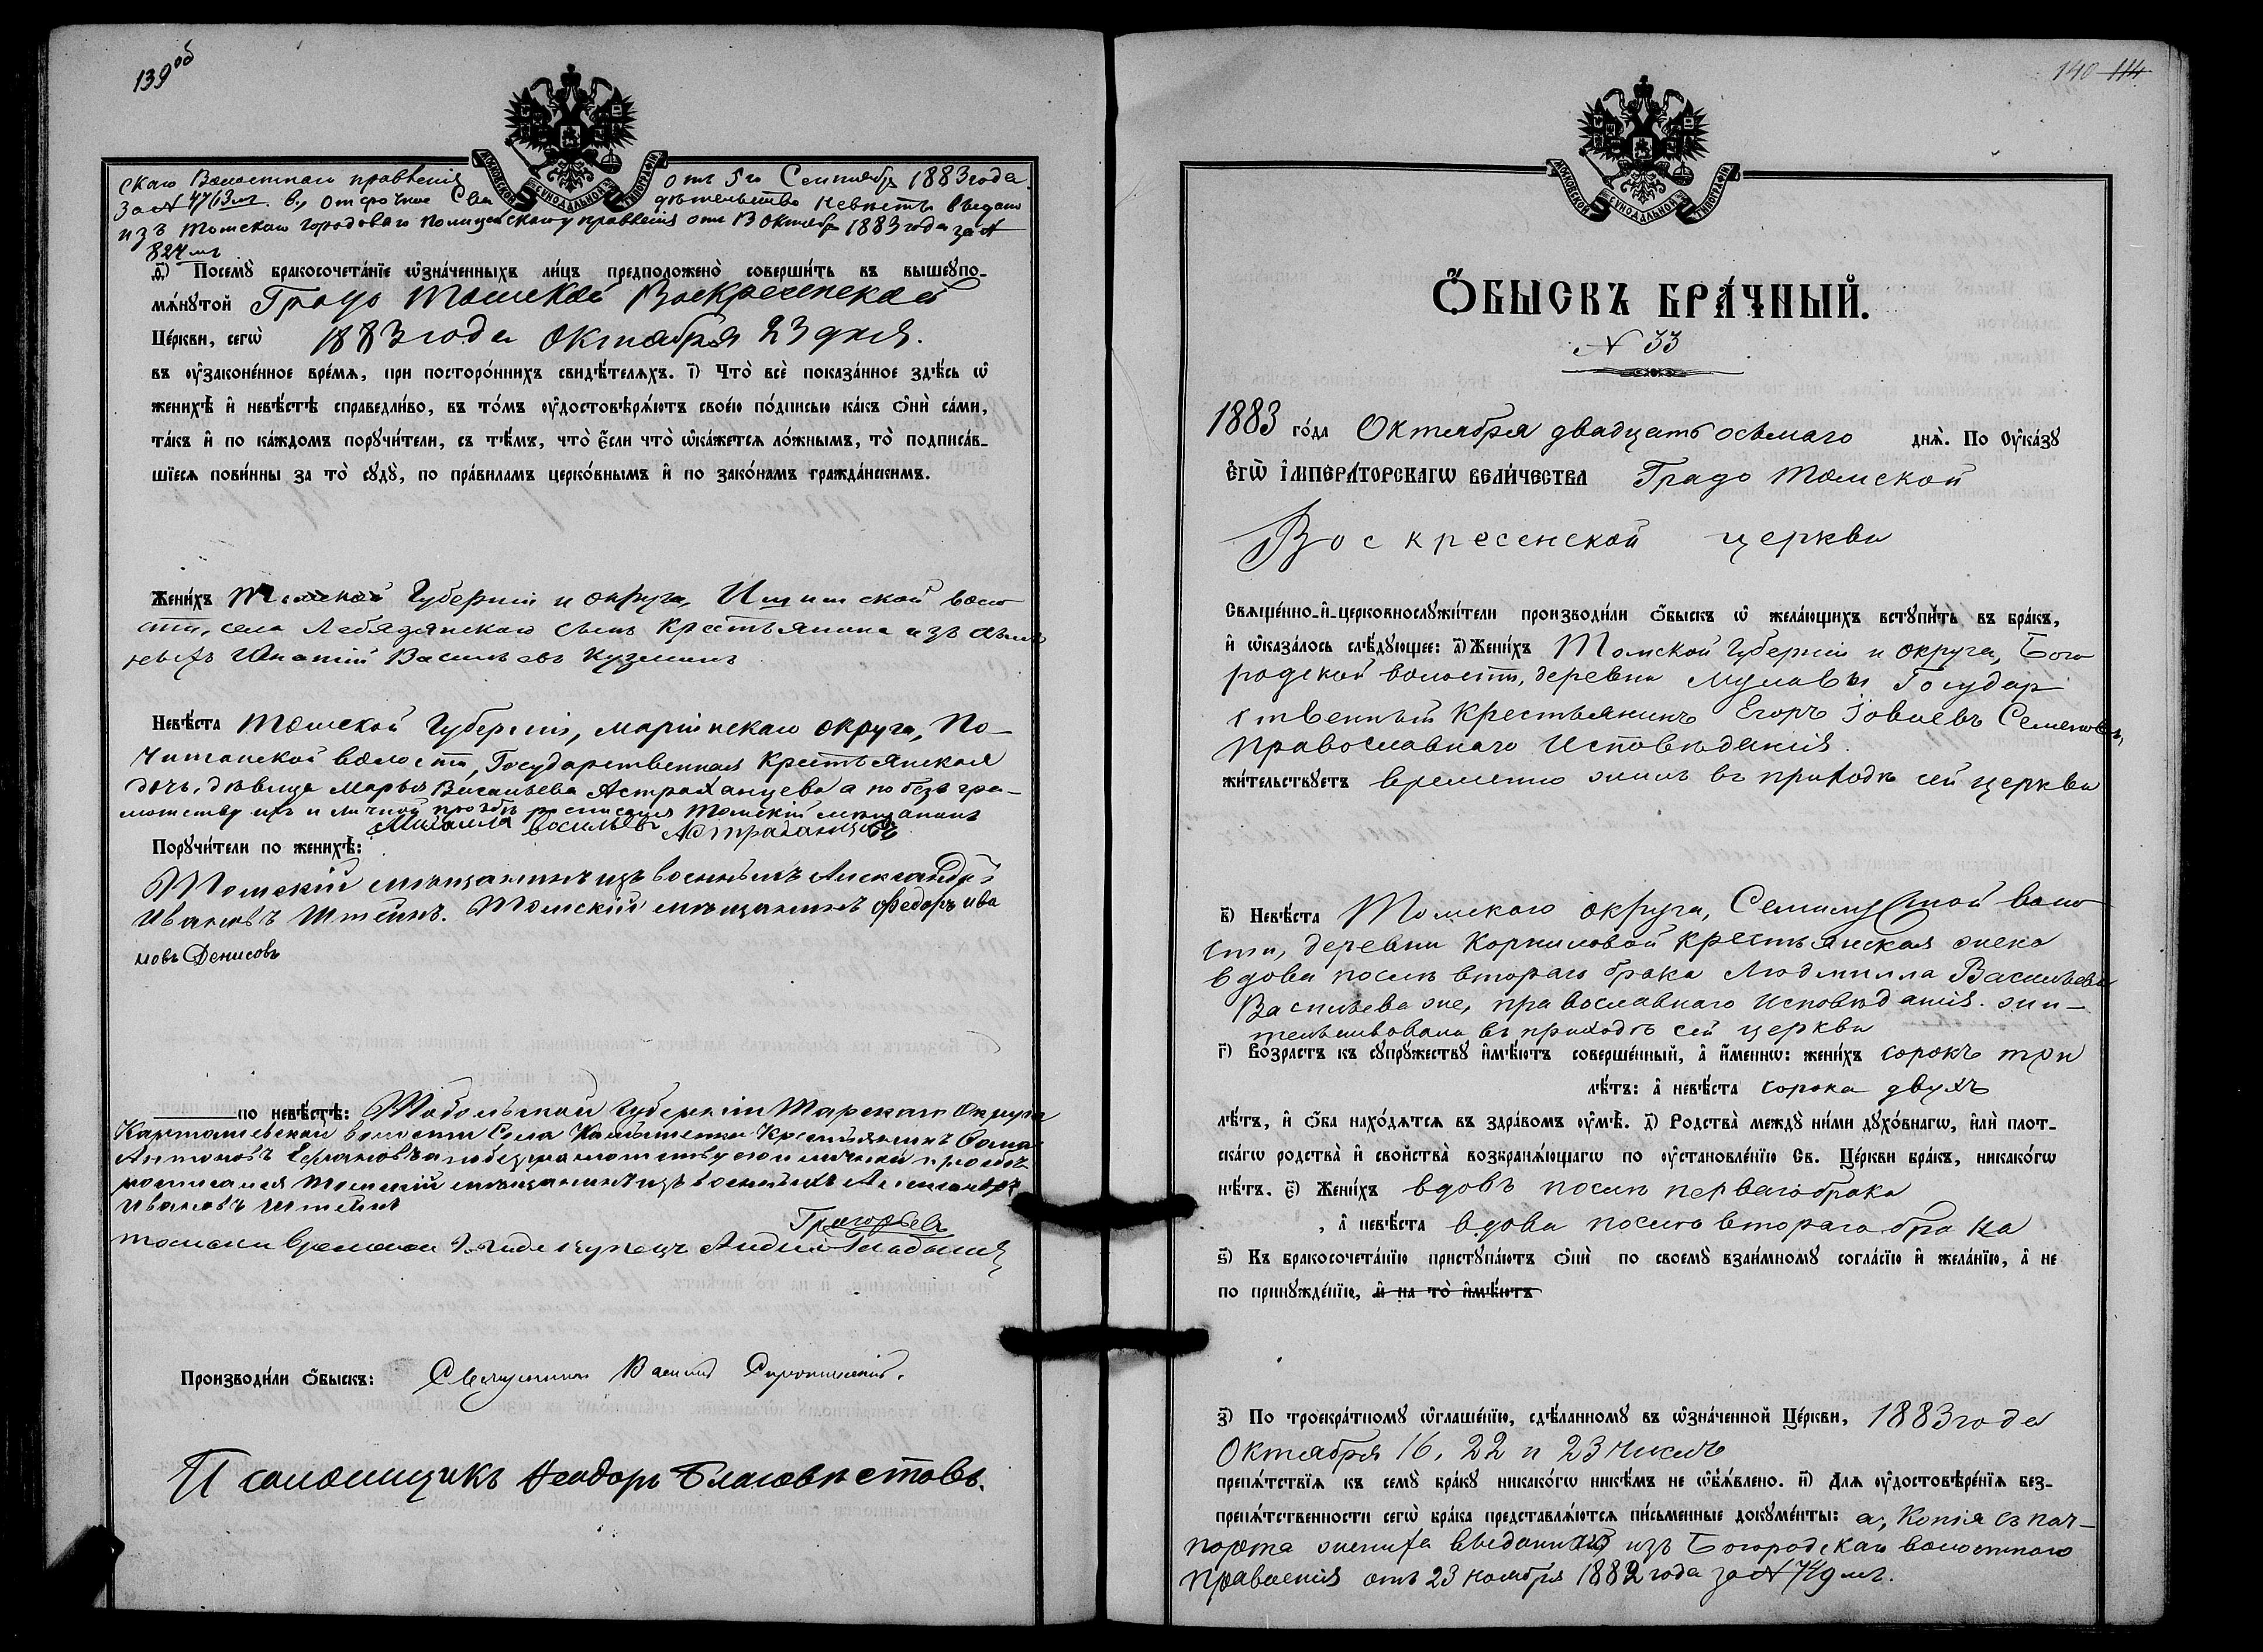 139 об
скаго Волостнаго правленія отъ 5го Сентября 1883 года
за № 4713мъ. в, отсрочное Сви дѣтельство невѣсты выдано
изъ Томскаго городоваго полицейскаго правленія отъ 13 Октября 1883 года за №
824мъ
д҃) Посемꙋ̀ бракосочета́нїе ѡ҆зна́ченныхъ ли́цъ предположено̀ соверши́ть въ вышеꙋпо-
мѧ́нꙋтой Градо Томской Воскресенской
Це́ркви, сегѡ̀ 1883 года Октября 23 дня.
въ ᲂу҆законе́нное вре́мѧ, при посторо́ннихъ свидѣ́телѧхъ. і҃) Что̀ всѐ показа́нное здѣ́сь ѡ҆
женихѣ̀ и҆ невѣ́стѣ справедли́во, въ то́мъ ᲂу҆достовѣрѧ́ютъ свое́ю по́дписью ка́къ ѻ҆нѝ са́ми,
та́къ и҆ по ка́ждомъ порꙋчи́тели, съ тѣ́мъ, что̀ є҆́сли что̀ ѡ҆ка́жетсѧ ло́жнымъ, то̀ подписа́в-
шїесѧ пови́нны за то̀ сꙋдꙋ̀, по пра́виламъ церко́внымъ и҆ по зако́намъ гражда́нскимъ.
Жени́хъ Томской Губерніи и округа, Ишимской воло
сти, села Лебядянскаго сынъ Крестьянина изъ
Игнатій Васильевъ Кузминъ
Невѣ́ста Томской Губерніи, Маріинскаго округа, По-
читанской волости, Государственная Крестьянская
дочь, дѣвица Марья Васильева Астраханцева а по безгра-
мотству ихъ и личной прозьбѣ росписался Томскій мѣщанинъ
Михаила Васильевъ Астраханцевъ
Порꙋчи́тели по женихѣ̀:
Томскій мѣщанинъ изъ военныхъ Александръ
Ивановъ Штейнъ. Томскій мѣщанинъ Федоръ Ива
новъ Денисовъ
по невѣ́стѣ: Тобольской Губерніи Тарскаго Округа
Карташевской волости Села Крестьянинъ
Антоновъ а по безграмотству его и личной прозбѣ
росписался Томскій мѣщанинъ изъ военныхъ Александръ
Ивановъ Штейнъ
Григорьевъ
томски временной купецъ
Производи́ли ѻ҆́быскъ: Священникъ Василій
И псаломщикъ Ѳеодоръ Благовѣстовъ.
140 114
Ѻ҆́БЫСКЪ БРА́ЧНЫЙ.
№ 33
1883 го́да Октября двадцать осьмаго днѧ̀. По Оу҆ка́зꙋ
Є҆ГѠ̀ І҆МПЕРА́ТОРСКАГѠ ВЕЛИ́ЧЕСТВА Градо Томской
Воскресенской церкви
Свѧще́нно-и҆-церковнослꙋжи́тели производи́ли ѻ҆́быскъ ѡ҆ жела́ющихъ встꙋпи́ть въ бра́къ,
и҆ ѡ҆каза́лось слѣ́дꙋющее: а҃) Жени́хъ Томской Губерніи и округа, Бого
родской волости, деревни Государ
ственный Крестьянинъ Егоръ Іовлевъ Семеновъ,
Православнаго Исповѣданія.
жи́тельствꙋетъ временно живъ въ приходѣ сей церкви
в҃) Невѣ́ста Томскаго округа, Семилужной воло
сти, деревни Корниловой крестьянская жена
вдова послѣ втораго брака Людмилла Васильева
Васильева же, православнаго Исповѣданія. жи-
тельствовала въ приходѣ сей церкви
г҃) Во́зрастъ къ сꙋпрꙋ́жествꙋ и҆мѣ́ютъ соверше́нный, а҆ и҆́меннѡ: жени́хъ сорокъ три
лѣ́тъ: а҆ невѣ́ста сорока двухъ
лѣ́тъ, и҆ ѻ҆́ба нахо́дѧтсѧ въ здра́вомъ ᲂу҆мѣ̀. д҃) Родства̀ междꙋ̀ ни́ми дꙋхо́внагѡ, и҆лѝ плот-
ска́гѡ родства̀ и҆ сво́йства̀ возбранѧ́ющагѡ по ᲂу҆становле́нїю Св. Це́ркви бра́къ, никако́гѡ
нѣ́тъ. є҃) Жени́хъ вдовъ послѣ перваго брака
, а҆ невѣ́ста вдова послѣ втораго брака
ѕ҃) Къ бракосочета́нїю пристꙋпа́ютъ ѻ҆нѝ по своемꙋ̀ взаи́мномꙋ согла́сїю и҆ жела́нїю, а҆ не
по принꙋжде́нїю, и҆ на то̀ и҆мѣ́ютъ
з҃) По троекра́тномꙋ ѡ҆глаше́нїю, сдѣ́ланномꙋ въ ѡ҆зна́ченной Це́ркви, 1883 года
Октября 16, 22 и 23 чиселъ
препѧ́тствїѧ къ семꙋ̀ бра́кꙋ никако́гѡ никѣ́мъ не ѡ҆б̾ѧ́влено. и҃) Длѧ ᲂу҆достовѣре́нїѧ без-
препѧ́тственности сегѡ̀ бра́ка представлѧ́ютсѧ пи́сьменные докꙋме́нты: а, Копія съ пас-
порта жениха выданная изъ Богородскаго волостнаго
правленія отъ 23 ноября 1882 года за № 749мъ.